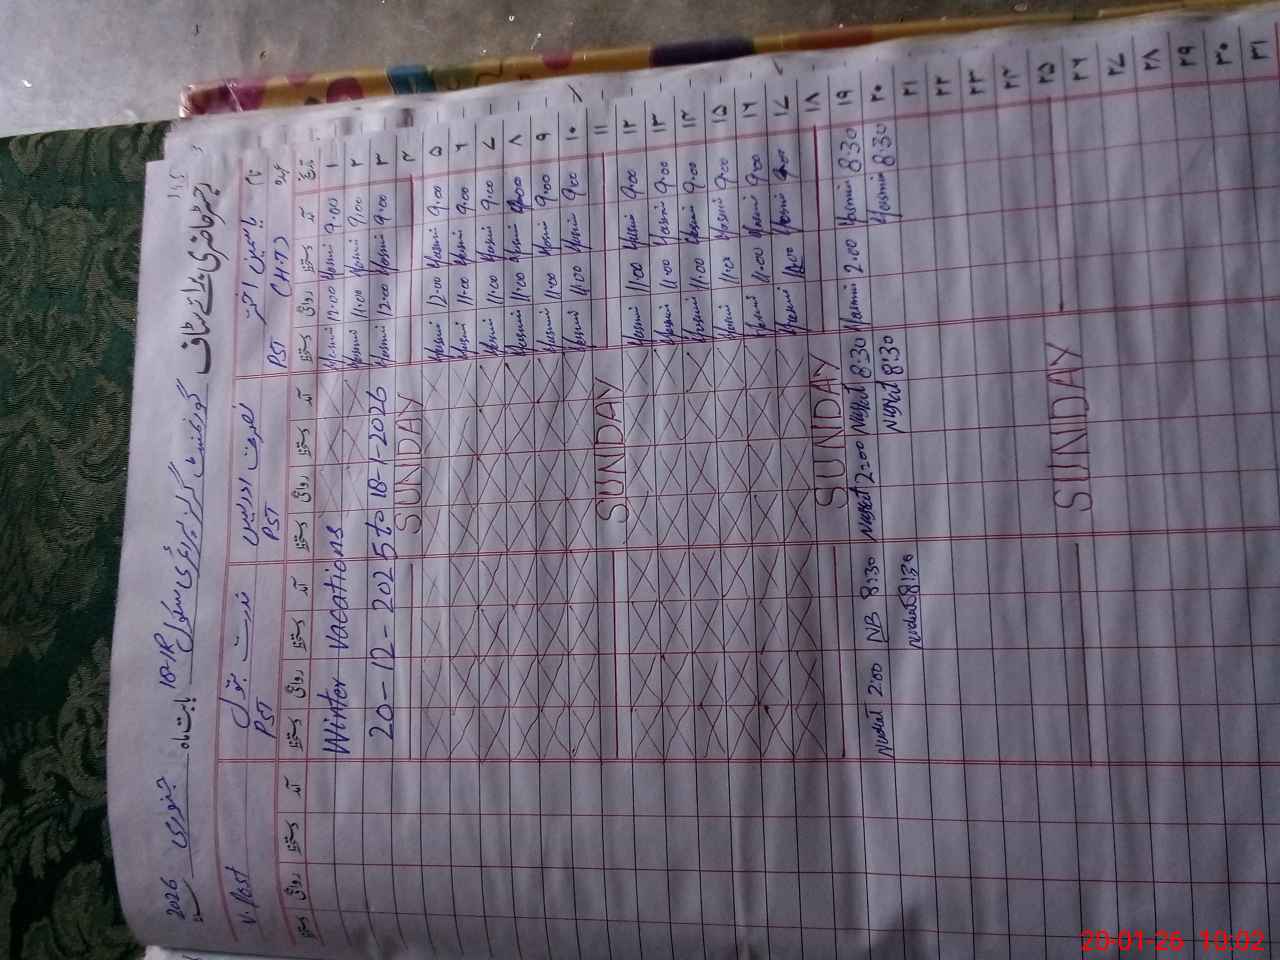 رجسٹر حاضری برائے سٹاف گورنمنٹ گرلز پرائمری سکول 18-1R بابت ماہ جنوری 2026
نام یاسمین اختر نصرت ادریس ندرت بتول V.Post
عہدہ (H.T) PST PST PST
تاریخ آمد دستخط روانگی دستخط آمد دستخط روانگی دستخط آمد دستخط روانگی دستخط آمد دستخط روانگی دستخط
۱ 9:00 Yasmin 12:00 Yasmin Winter Vacations
۲ 9:00 Yasmin 11:00 Yasmin
۳ 9:00 Yasmin 12:00 Yasmin 20-12-2025 to 18-1-2026
۴ SUNDAY
۵ 9:00 Yasmin 12:00 Yasmin
۶ 9:00 Yasmin 11:00 Yasmin
۷ 9:00 Yasmin 11:00 Yasmin
۸ 9:00 Yasmin 11:00 Yasmin
۹ 9:00 Yasmin 11:00 Yasmin
۱۰ 9:00 Yasmin 11:00 Yasmin
۱۱ SUNDAY
۱۲ 9:00 Yasmin 11:00 Yasmin
۱۳ 9:00 Yasmin 11:00 Yasmin
۱۴ 9:00 Yasmin 11:00 Yasmin
۱۵ 9:00 Yasmin 11:00 Yasmin
۱۶ 9:00 Yasmin 11:00 Yasmin
۱۷ 9:00 Yasmin 11:00 Yasmin
۱۸ SUNDAY
۱۹ 8:30 Yasmin 2:00 Yasmin 8:30 Nusrat 2:00 Nusrat 8:30 NB 2:00 Nudrat
۲۰ 8:30 Yasmin 8:30 Nusrat 8:30 Nudrat
۲۱
۲۲
۲۳
۲۴
۲۵ SUNDAY
۲۶
۲۷
۲۸
۲۹
۳۰
۳۱
20-01-26 10:02